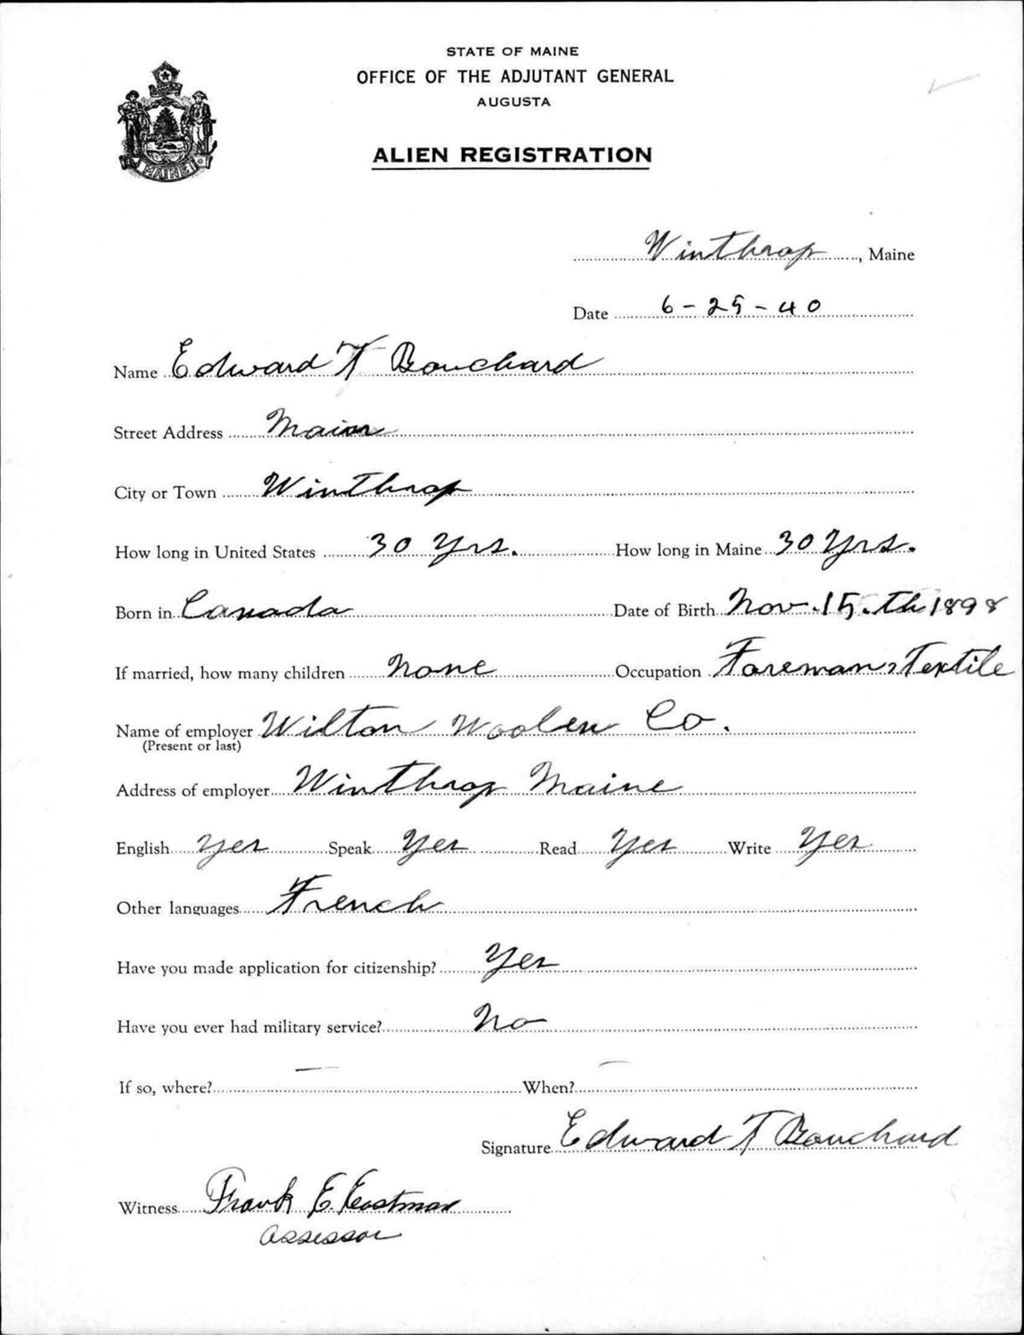 STATE OF MAINE
OFFICE OF THE ADJUTANT GENERAL
AUGUSTA
ALIEN REGISTRATION
MAINE
Winthrop, Maine
Date 6-25-40
Name Edward T Bouchard
Street Address Main
City or Town Winthrop
How long in United States 30 Yrs. How long in Maine 30 Yrs.
Born in Canada Date of Birth Nov. 15.th 1898
If married, how many children None Occupation Foreman, Textile
Name of employer Wilton Woolen Co.
(Present or last)
Address of employer Winthrop Maine
English Yes Speak Yes Read Yes Write Yes
Other languages French
Have you made application for citizenship? Yes
Have you ever had military service? No
If so, where? — When? —
Signature Edward T Bouchard
Witness Frank E. Eastman
Assessor